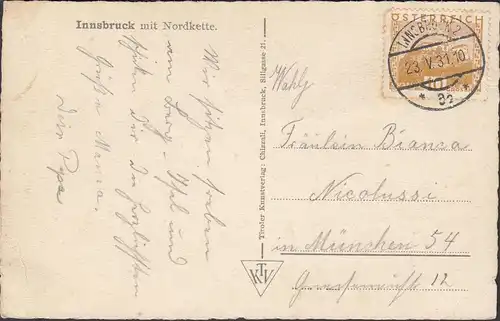 Innsbruck mit Nordkette.
Wir sitzen
am Berg Isel und
Dir die herzlichsten
Grüße Mama.
Dein Papa
Tiroler Kunstverlag: Chizzali, Innsbruck, Sillgasse 21.
KTV
ÖSTERREICH
INNSBRUCK 2
23.V.31.10
Wohlg
Fräulein Bianca
Nicolussi
in München 54
12